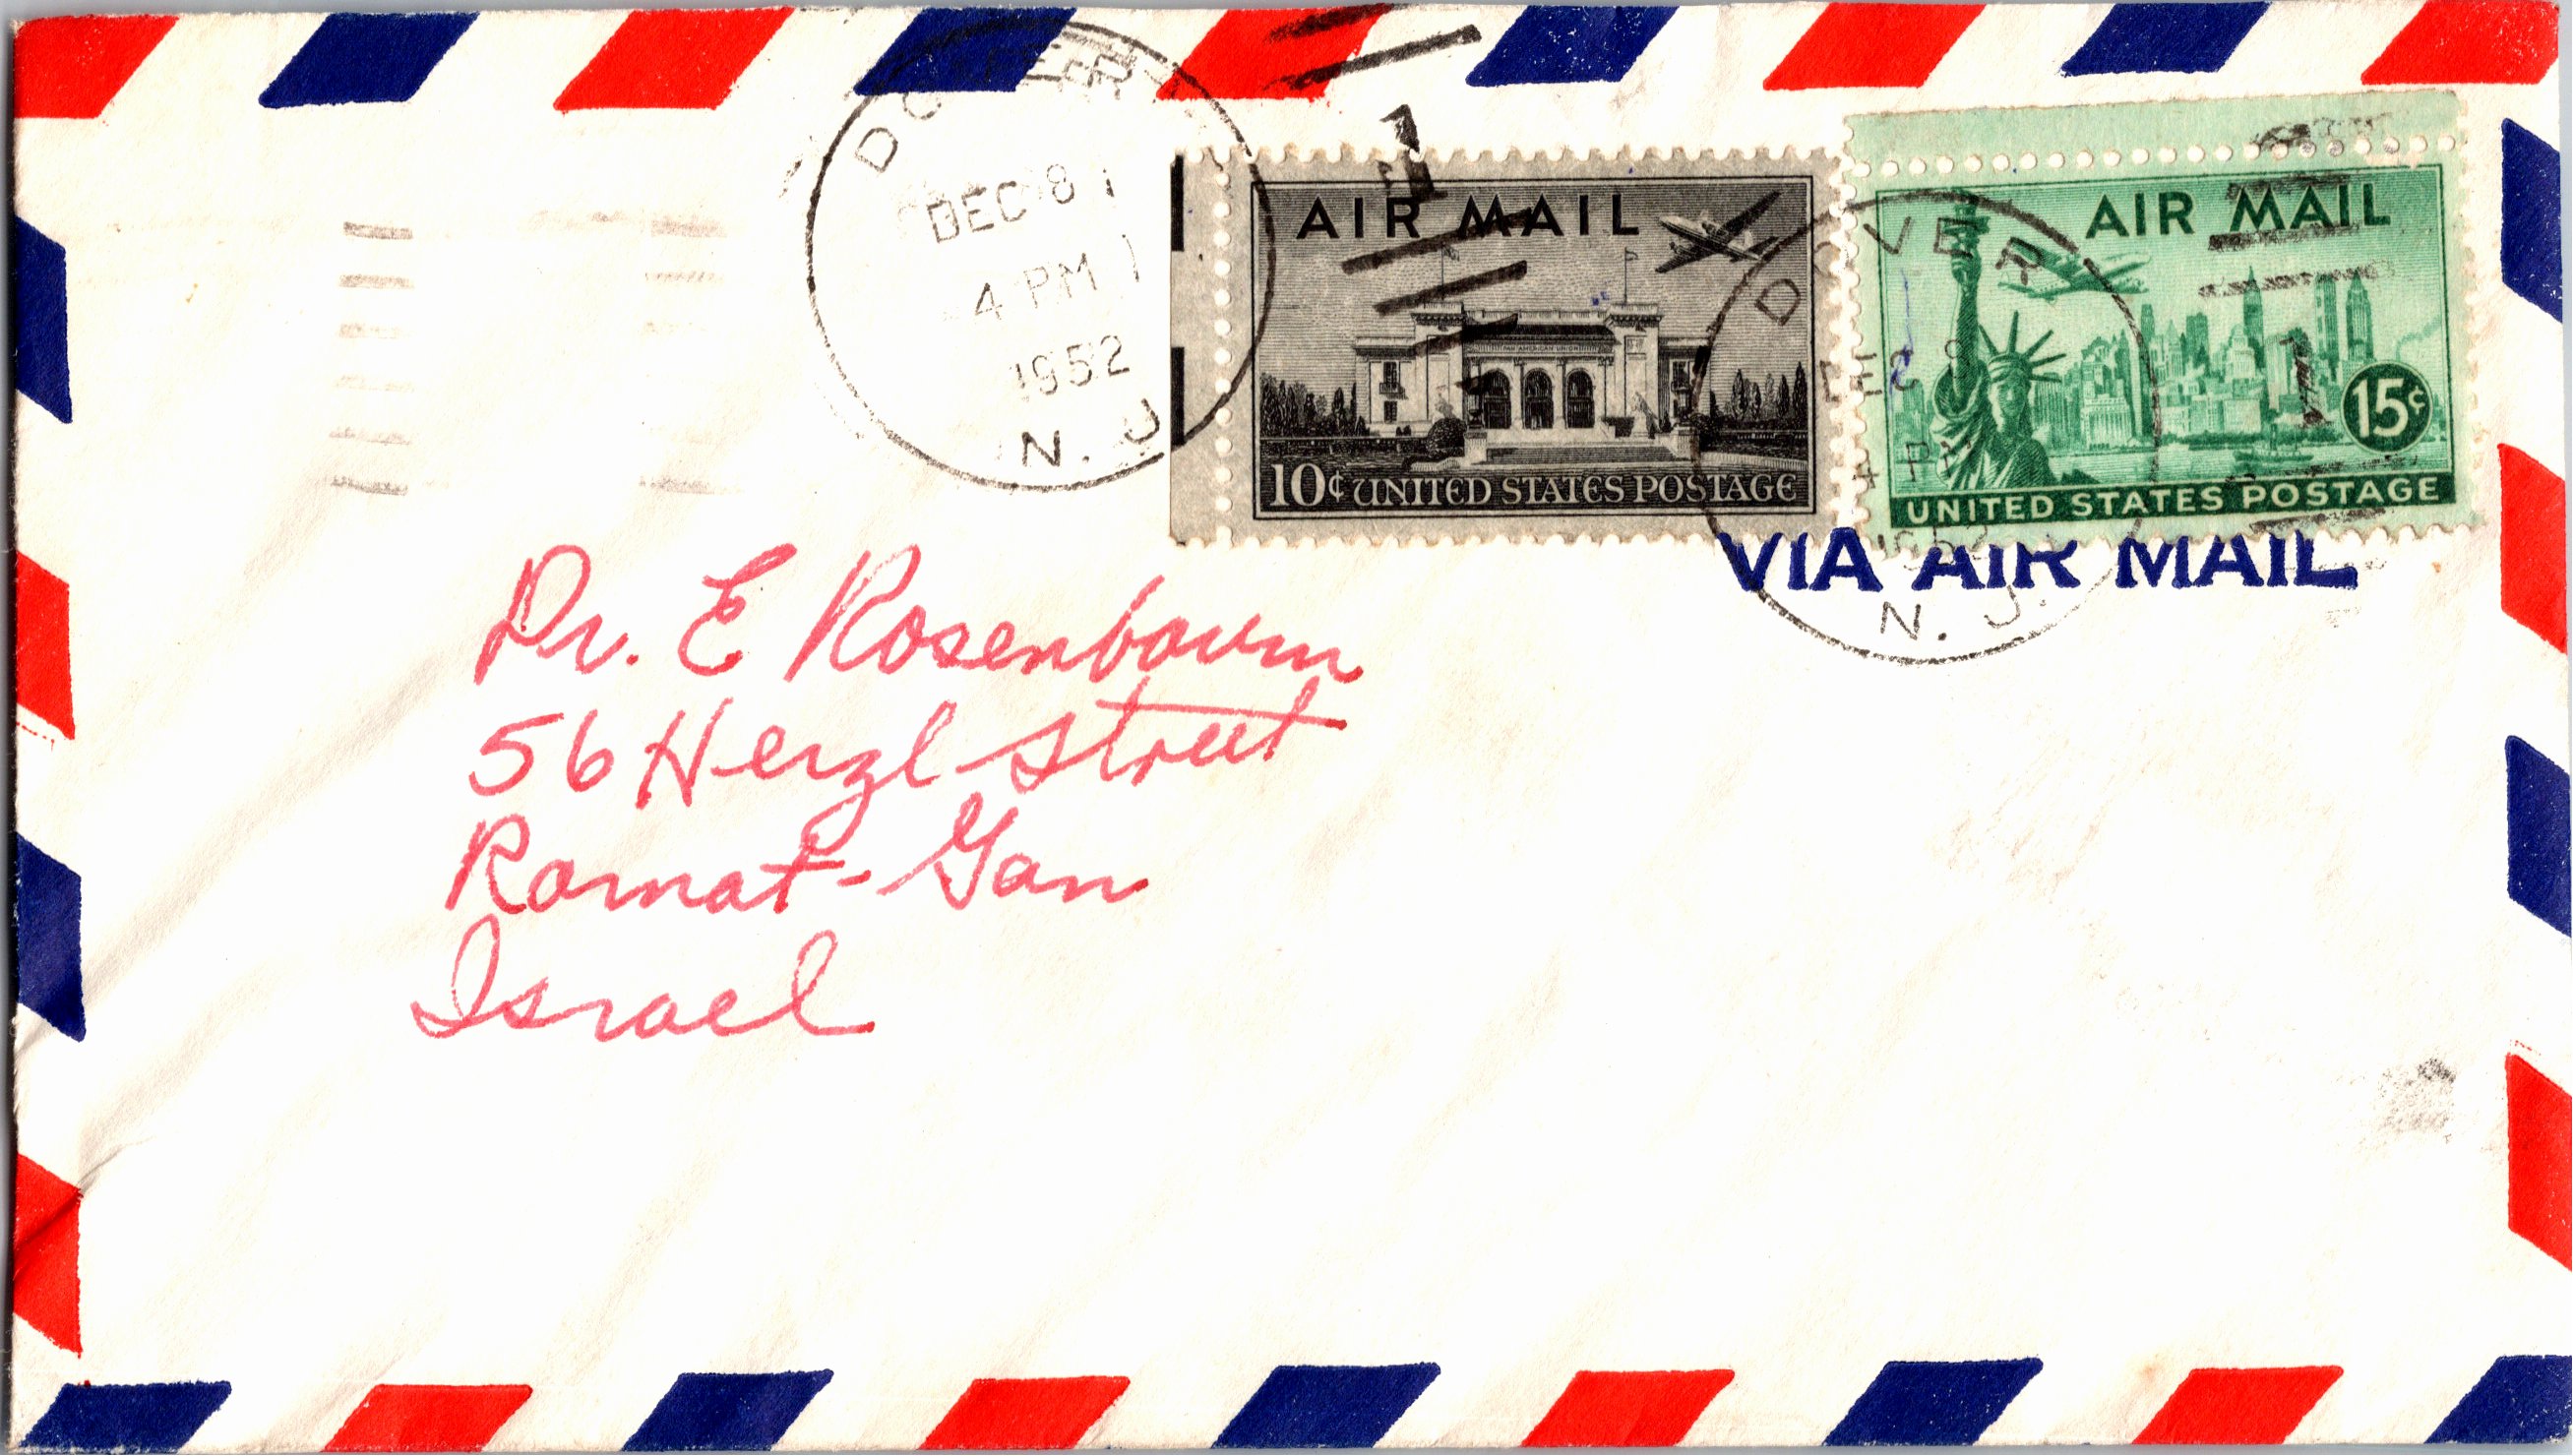 DOVER
DEC 8
4 PM
1952
N. J.
AIR MAIL
10¢ UNITED STATES POSTAGE
AIR MAIL
15¢
UNITED STATES POSTAGE
DOVER
1952
N. J.
VIA AIR MAIL
Dr. E Rosenbaum
56 Herzl Street
Ramat-Gan
Israel